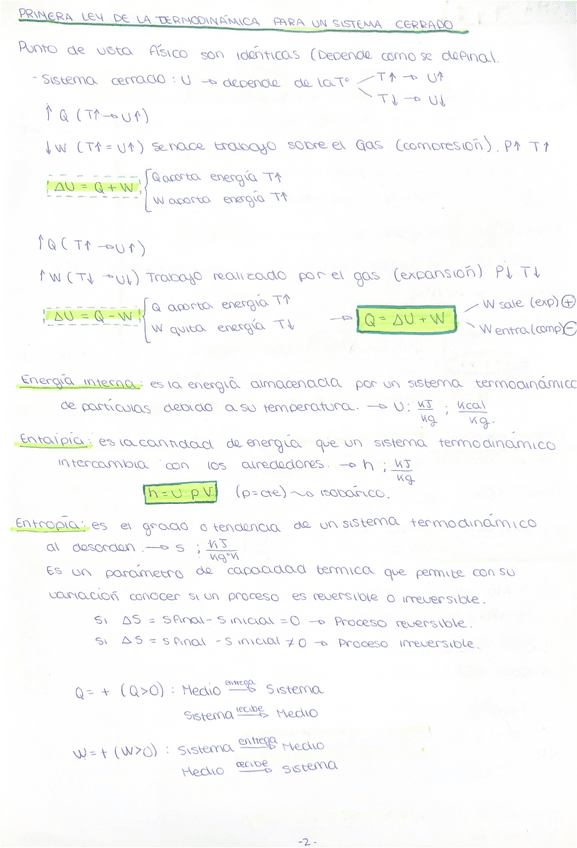 PRIMERA LEY DE LA TERMODINÁMICA PARA UN SISTEMA CERRADO
Punto de vista físico son idénticas (Depende como se defina).
- Sistema cerrado : U → depende de la Tº
T↑ → U↑
T↓ → U↓
↑ Q ( T↑ → U↑ )
↓ W ( T↑ = U↑ ) Se hace trabajo sobre el Gas (compresión). P↑ T↑
ΔU = Q + W
Q aporta energía T↑
W aporta energía T↑
↑ Q ( T↑ → U↑ )
↑ W ( T↓ → U↓ ) Trabajo realizado por el gas (expansión) P↓ T↓
ΔU = Q - W
Q aporta energía T↑
W quita energía T↓
→ Q = ΔU + W
W sale (exp) +
W entra (comp) -
Energía interna : es la energía almacenada por un sistema termodinámico
de partículas debido a su temperatura. → U: KJ/Kg ; Kcal/Kg.
Entalpía : es la cantidad de energía que un sistema termodinámico
intercambia con los alrededores. → h ; KJ/Kg
h = U p V (p=cte) ~> isobárico.
Entropía : es el grado o tendencia de un sistema termodinámico
al desorden. → s ; KJ/Kg°K
Es un parámetro de capacidad termica que permite con su
variación conocer si un proceso es reversible o irreversible.
Si ΔS = S final - S inicial = 0 → Proceso reversible.
Si ΔS = S final - S inicial ≠ 0 → Proceso irreversible.
Q = + (Q>0) : Medio entrega→ Sistema
Sistema recibe→ Medio
W = + (W>0) : Sistema entrega→ Medio
Medio recibe→ Sistema
-2-